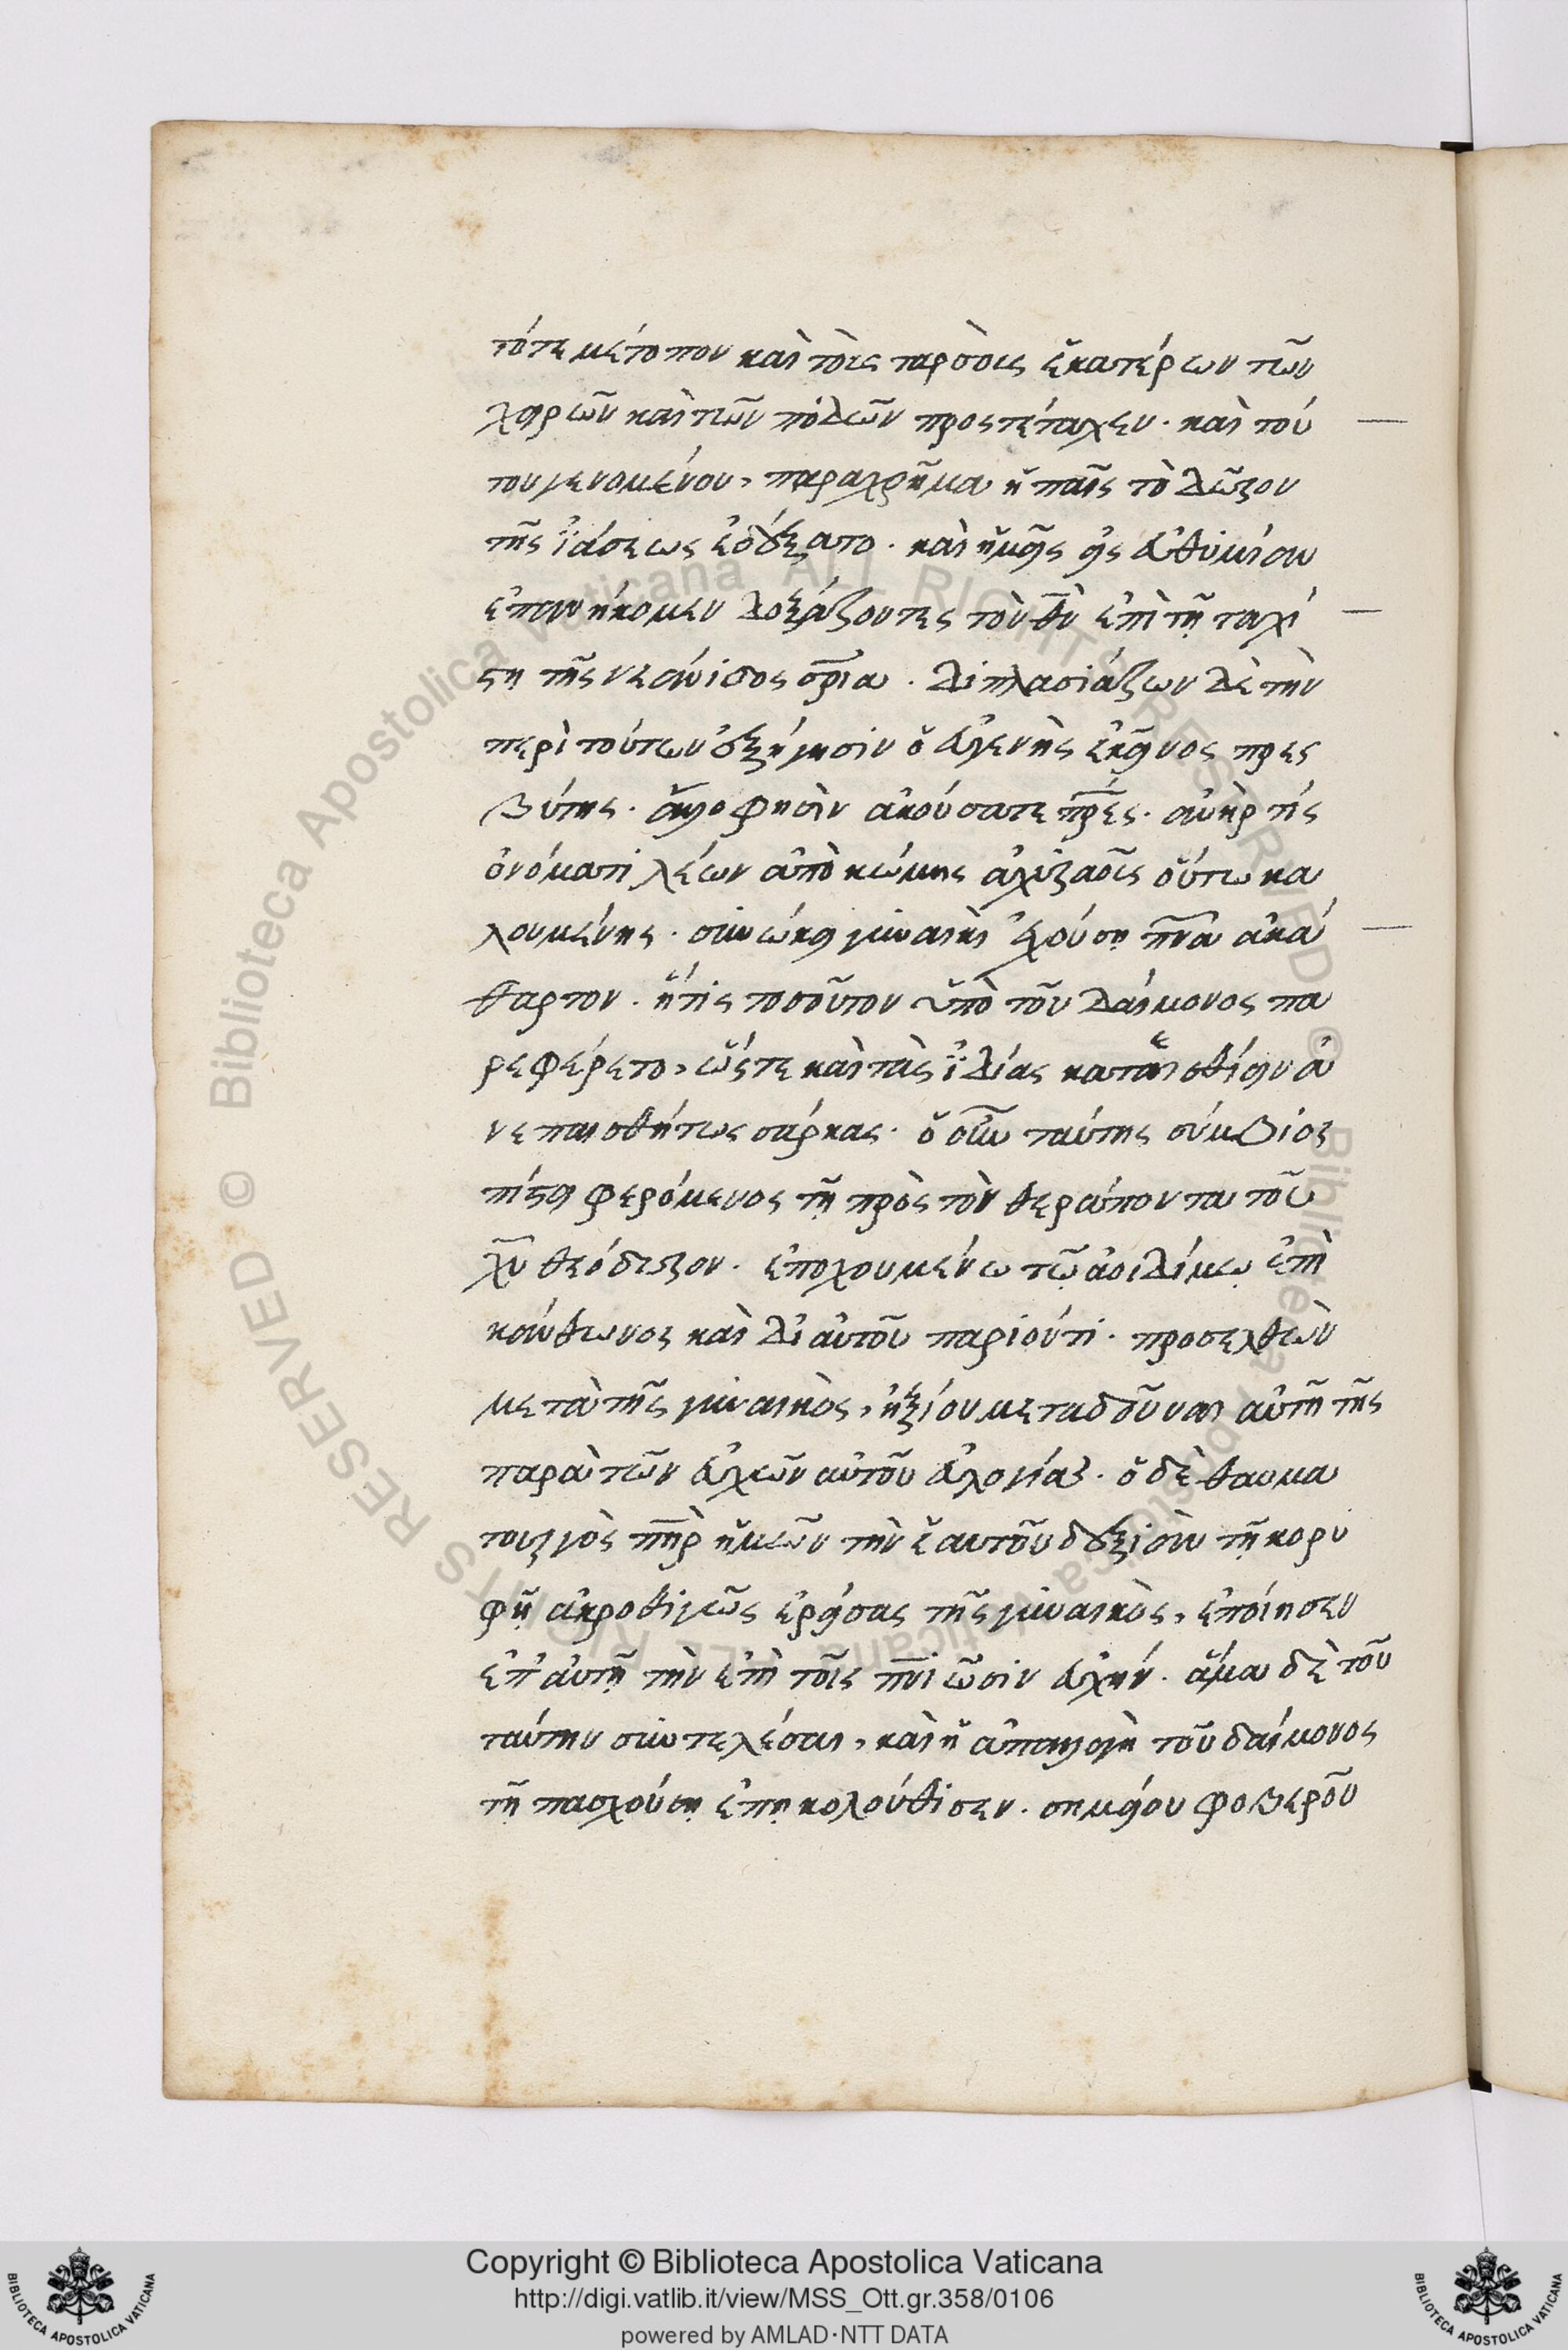 τότε μέτοπον καὶ τοῖς ταρσοῖς ἑκατέρων τῶν
χειρῶν καὶ τῶν ποδῶν προςτέταχεν· καὶ τού
του γενομένου, παραχρῆμα ἡ παῖς τὸ δῶρον
τῆς ἰάσεως ἐδέξατο· καὶ ἡμεῖς εἰς εὐθυμίαν
ἐπανήκομεν δοξάζοντες τὸν θν ἐπὶ τῇ ταχί
στη τῆς νεάνιδος σρια· διπλασιάζων δὲ τὴν
περὶ τούτων ἐξήγησιν ὁ εὐγενὴς ἐκεῖνος πρες
βύτης· ἄλλο φησὶν ἀκούσατε πρες· ἀνήρ τίς
ὀνόματι λέων ἀπὸ κώμης ἀχιραοῖς οὕτω κα
λουμένης· συνώκει γυναικὶ ἐχούση πνα ἀκά
θαρτον· ἥτις τοσοῦτον ὑπὸ τοῦ δαίμονος πα
ρεφέρετο, ὥςτε καὶ τὰς ἰδίας καταεισθίειν ἀ
νεπαισθήτως σάρκας· ὁ οὖν ταύτης σύμβιος
πίστει φερόμενος τῇ πρὸς τὸν θεράποντα τοῦ
χυ θεόδωρον· ἐποχουμένω τῷ ἀοιδίμῳ ἐπὶ
κάνθωνος καὶ δι αὐτοῦ παριόντι· προσελθὼν
μετὰ τῆς γυναικὸς, ἠξίου μεταδοῦναι αὐτῆ τῆς
παρὰ τῶν εὐχῶν αὐτοῦ εὐλογίας· ὁ δὲ θαυμα
τουργὸς πηρ ἡμῶν τὴν ἑαυτοῦ δεξιὰν τῇ κορυ
φῇ ἀκροθιγῶς ἐρείσας τῆς γυναικὸς, ἐποίησεν
ἐπ' αὐτῇ τὴν ἐπὶ τοῖς πνιῶσιν εὐχήν· ἅμα δὲ τοῦ
ταύτην συντελέσαι, καὶ ἡ ἀπαλλαγὴ τοῦ δαίμονος
τῇ πασχούσῃ ἐπηκολούθισεν· σημείου φοβεροῦ
Copyright © Biblioteca Apostolica Vaticana
http://digi.vatlib.it/view/MSS_Ott.gr.358/0106
powered by AMLAD·NTT DATA